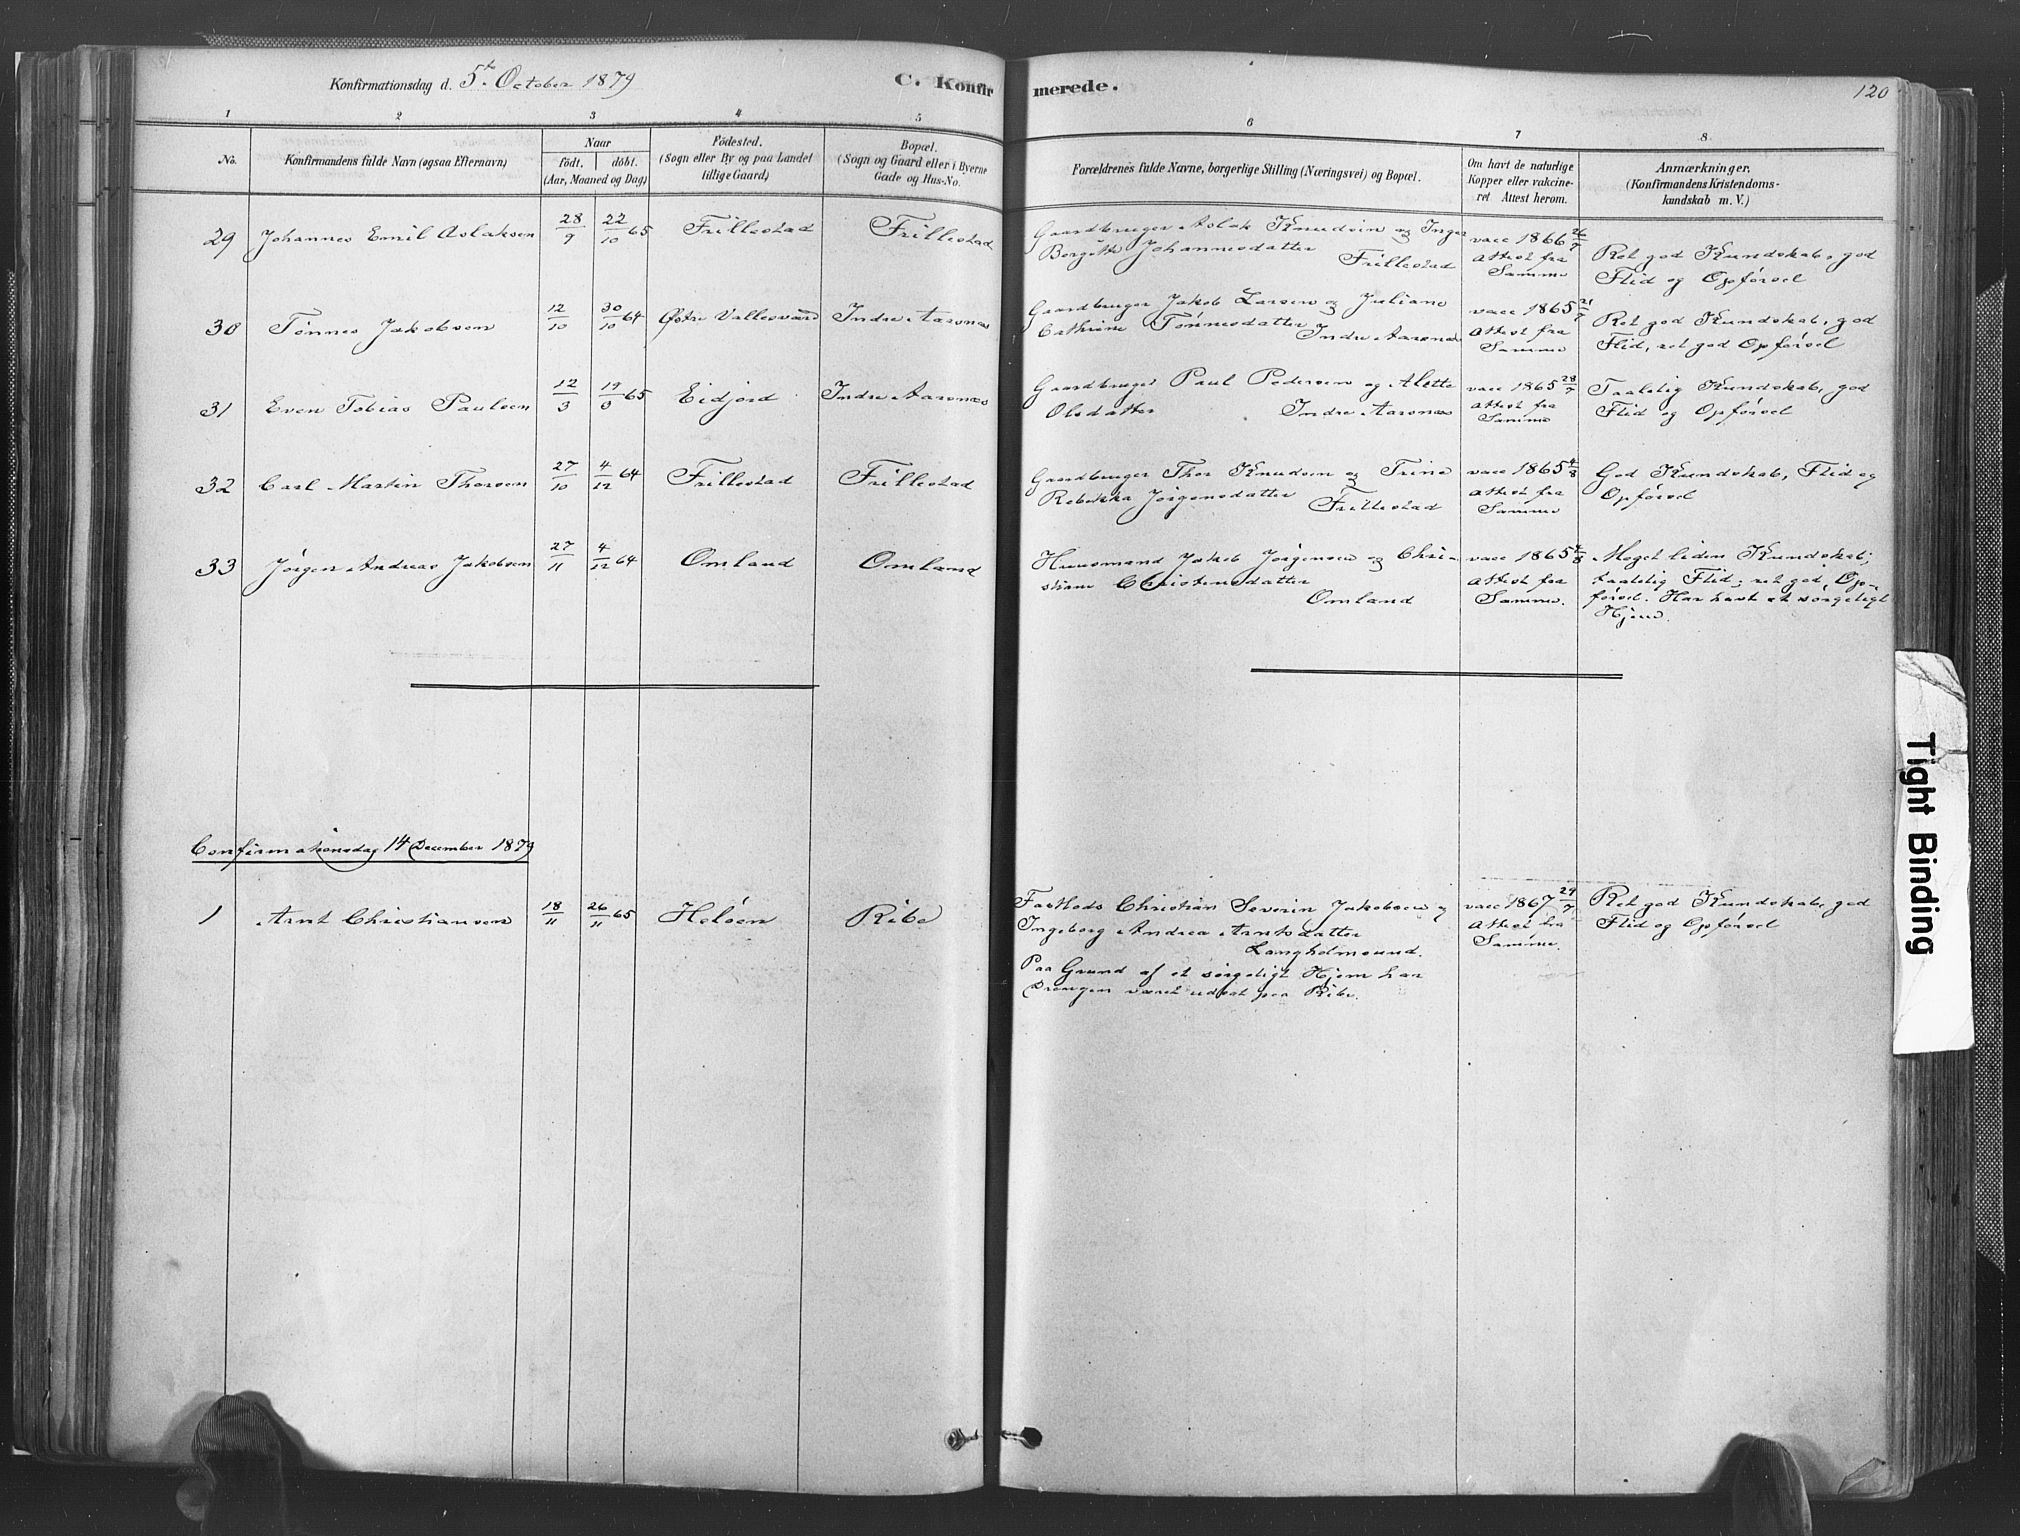 Konfirmationsdag d. 5te October 1879
C. Konfirmerede.
120
1 2 3 4 5 6 7 8
No.
Konfirmandens fulde Navn (ogsaa Efternavn)
Naar
født. døbt.
(Aar, Maaned og Dag)
Fødested.
(Sogn eller By og paa Landet
tillige Gaard)
Bopæl.
(Sogn og Gaard eller i Byerne
Gade og Hus-No.
Forældrenes fulde Navne, borgerlige Stilling (Næringsvei) og Bopæl.
Om havt de naturlige
Kopper eller vakcine-
ret Attest herom.
Anmærkninger.
(Konfirmandens Kristendoms-
kundskab m. V.)
29 Johannes Emil Aslaksen 28/9 22/10 65 Frillestad Frillestad
Gaardbruger Aslak Knudsen og Inger
Borgitte Johannesdatter
Frillestad
vacc 1866 26/7
Attest fra
Samme
Ret god Kundskab, god
Flid og Opførsel
30 Tønnes Jakobsen 12/10 30/10 64 Østre Vallesværd Indre Aarsnæs
Gaardbruger Jakob Larsen og Juliane
Cathrine Tønnesdatter
Indre Aarsnæs
vacc 1865 21/7
Attest fra
Samme
Ret god Kundskab, god
Flid, ret god Opførsel
31 Even Tobias Paulsen 12/3 19/ 65 Eidjord Indre Aarsnæs
Gaardbruger Paul Pedersen og Alette
Olsdatter Indre Aarsnæs
vacc 1865 28/7
Attest fra
Samme
Taalelig Kundskab, god
Flid og Opførsel
32 Carl Martin Thorsen 27/10 4/12 64 Frillestad Frillestad
Gaardbruger Thor Knudsen og Trine
Rebekka Jørgensdatter
Frillestad
vacc 1865 4/8
Attest fra
Samme
God Kundskab, Flid og
Opførsel
33 Jørgen Andreas Jakobsen 27/11 4/12 64 Omland Omland
Huusmand Jakob Jørgensen og Chri-
stiane Christensdatter
Omland
vacc 1865 4/8
Attest fra
Samme.
Meget liden Kundskab;
taalelig Flid; ret god Op-
førsel. Har havt et sørgeligt
Hjem.
Confirmationsdag 14 December 1879
1 Arnt Christiansen 18/11 26/11 65 Heløen Ribe
Fastlods Christian Severin Jakobsen og
Ingeborg Andrea Arntsdatter
Langholmsund.
Paa Grund af et sørgeligt Hjem har
Drengen været udsat paa Ribe.
vacc 1867 29/7
Attest fra
Samme
Ret god Kundskab, god
Flid og Opførsel
Tight Binding